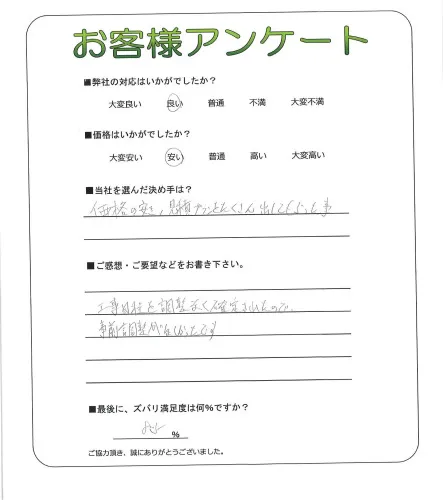 お客様アンケート
■弊社の対応はいかがでしたか？
大変良い 良い 普通 不満 大変不満
■価格はいかがでしたか？
大変安い 安い 普通 高い 大変高い
■当社を選んだ決め手は？
価格の安さ、見積プランをたくさん出してもらった事
■ご感想・ご要望などをお書き下さい。
工事日程を調整なく確定されたので、
事前調整がほしかったです
■最後に、ズバリ満足度は何％ですか？
％
ご協力頂き、誠にありがとうございました。